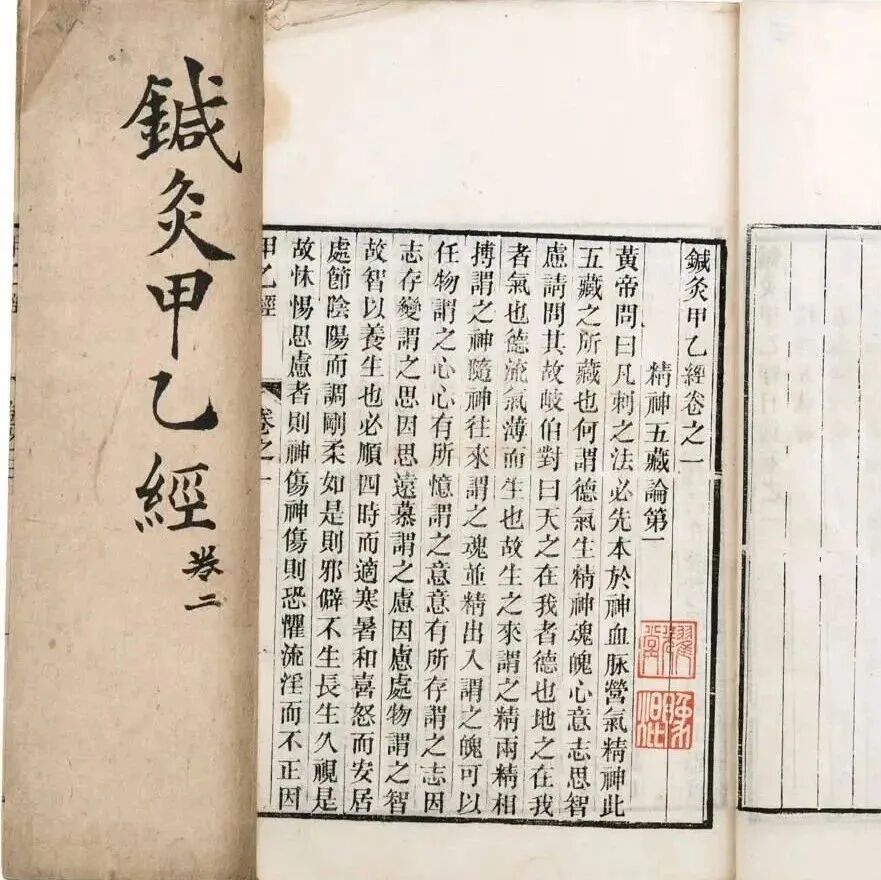 鍼灸甲乙經
卷二
鍼灸甲乙經卷之一
精神五藏論第一
黃帝問曰凡刺之法必先本於神血脉營氣精神此
五藏之所藏也何謂德氣生精神魂魄心意志思智
慮請問其故岐伯對曰天之在我者德也地之在我
者氣也德流氣薄而生也故生之來謂之精兩精相
搏謂之神隨神往來謂之魂並精出入謂之魄可以
任物謂之心心有所憶謂之意意有所存謂之志因
志存變謂之思因思遠慕謂之慮因慮處物謂之智
故智以養生也必順四時而適寒暑和喜怒而安居
處節陰陽而調剛柔如是則邪僻不生長生久視是
故怵惕思慮者則神傷神傷則恐懼流淫而不正因
甲乙經 卷之一